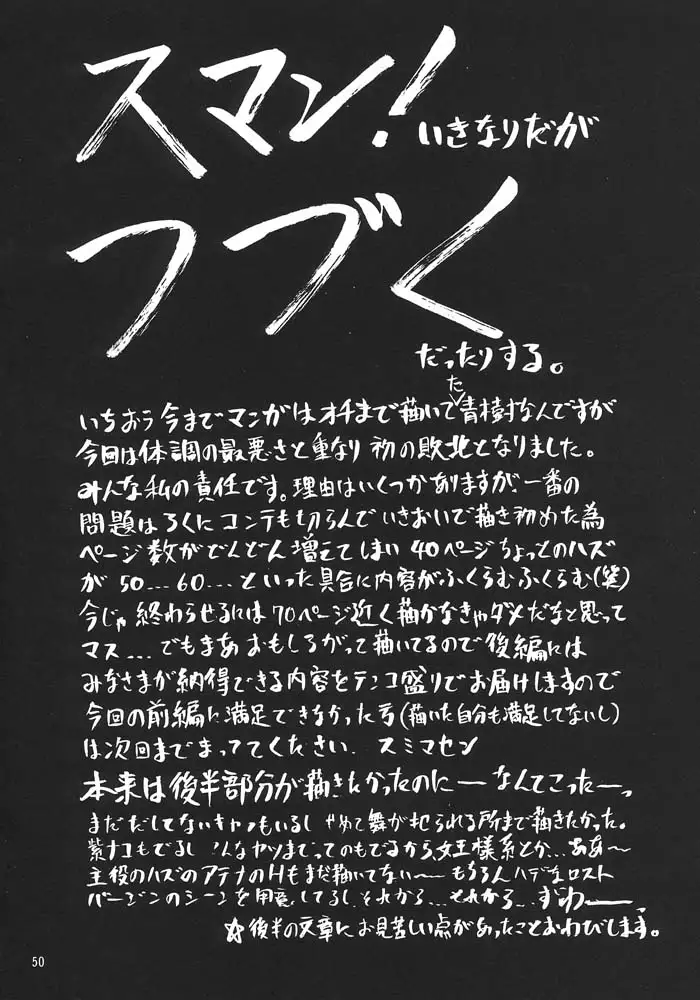 スマン!いきなりだが
つづく
だったりする。
いちおう今までマンガはオチまで描いてた青樹村なんですが
今回は体調の最悪さと重なり初の敗北となりました。
みんな私の責任です。理由はいくつかありますが、一番の
問題はろくにコンテも切らんでいきおいで描き初めた為
ページ数がどんどん増えてしまい 40ページちょっとのハズ
が 50…60…といった具合に内容がふくらむふくらむ(笑)
今じゃ終わらせるには70ページ近く描かなきゃダメだなと思って
マス…でもまあおもしろがって描いてるので後編には
みなさまが納得できる内容をテンコ盛りでお届けしますので
今回の前編に満足できなかった方(描いた自分も満足してないし)
は次回までまっててください. スミマセン
本来は後半部分が描きたかったのにーなんてこったーっ
まだだしてないキャラもいるし せめて舞が犯られる所まで描きたかった。
紫ナコもでるし こんなヤツまでってのもでるから女王様系とか…ああ〜
主役のハズのアテナのHもまだ描いてない〜もちろんハデなロスト
バージンのシーンを用意してるし それから…それから…ずわーーっ
☆後半の文章にお見苦しい点があったことおわびします。
50